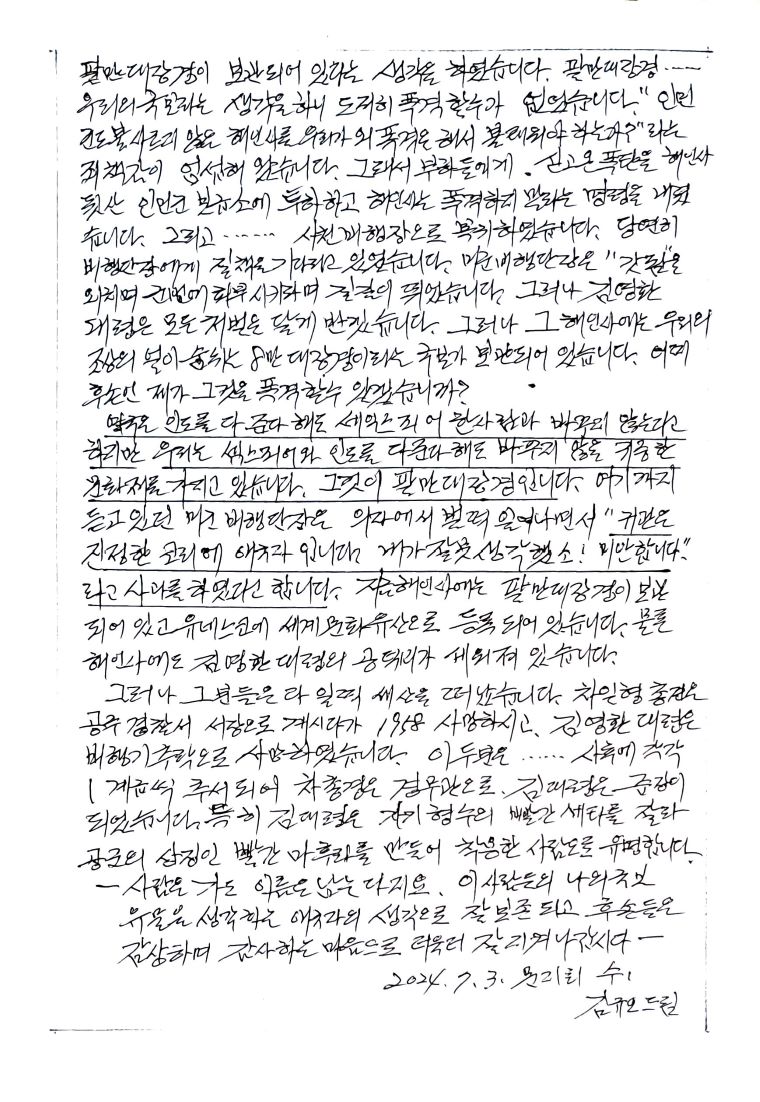 팔만대장경이 보관되어 있다는 생각을 하였습니다. 팔만대장경 ……
우리의 국보라는 생각을 하니 도저히 폭격할수가 없었습니다." 인민
군도 불사르지 않은 해인사를 우리가 왜 폭격을 해서 불태워야 하는가?"라는
죄책감이 엄습해 왔습니다. 그래서 부하들에게. 싣고온 폭탄을 해인사
뒷산 인민군 보급소에 투하하고 해인사는 폭격하지 말라는 명령을 내렸
습니다. 그리고 …… 사천비행장으로 복귀하였습니다. 당연히
비행단장에게 질책을 기다리고 있었습니다. 미군비행단장은 "갓뎀"을
외치며 헌병에 파루시키라며 길길이 뛰었습니다. 그러나 김영환
대령은 모든 처벌은 달게 받겠습니다. 그러나 그 해인사에는 우리의
조상의 얼이 숨쉬는 8만대장경이라는 국보가 보관되어 있습니다. 어찌
후손인 제가 그것을 폭격할수 있겠습니까?
영국은 인도를 다 준다 해도 세익스피어 한사람과 바꾸지 않는다고
하지만 우리는 섹스피어와 인도를 다준다 해도 바꾸지 않을 귀중한
문화재를 가지고 있습니다. 그것이 팔만대장경입니다. 여기까지
듣고 있던 미군 비행단장은 의자에서 벌떡 일어나면서 "귀관은
진정한 코리에 애국자 입니다. 내가 잘못 생각했소! 미안합니다."
라고 사과를 하였다고 합니다. 지금 해인사에는 팔만대장경이 보관
되어 있고 유네스코에 세계문화유산으로 등록되어 있습니다. 물론
해인사에도 김영환 대령의 공덕비가 세워져 있습니다.
그러나 그분들은 다 일찍 세상을 떠났습니다. 차일형 총경은
공주 경찰서 서장으로 계시다가 1958 사망하시고, 김영환 대령은
비행기 추락으로 사망하였습니다. 이 두분은 …… 사후에 각각
1계급씩 추서되어 차총경은 경무관으로, 김대령은 준장이
되었습니다. 특히 김대령은 자기 형수의 빨간 세타를 잘라
공군의 상징인 빨간 마후라를 만들어 착용한 사람으로 유명합니다.
— 사람은 가도 이름은 남는다지요. 이사람들의 나의국보
유물을 생각하는 애국자의 생각으로 잘 보존되고 후손들은
감상하며 감사하는 마음으로 더욱더 잘 지켜나갑시다 —
2024. 7. 3. 수
김규 드림